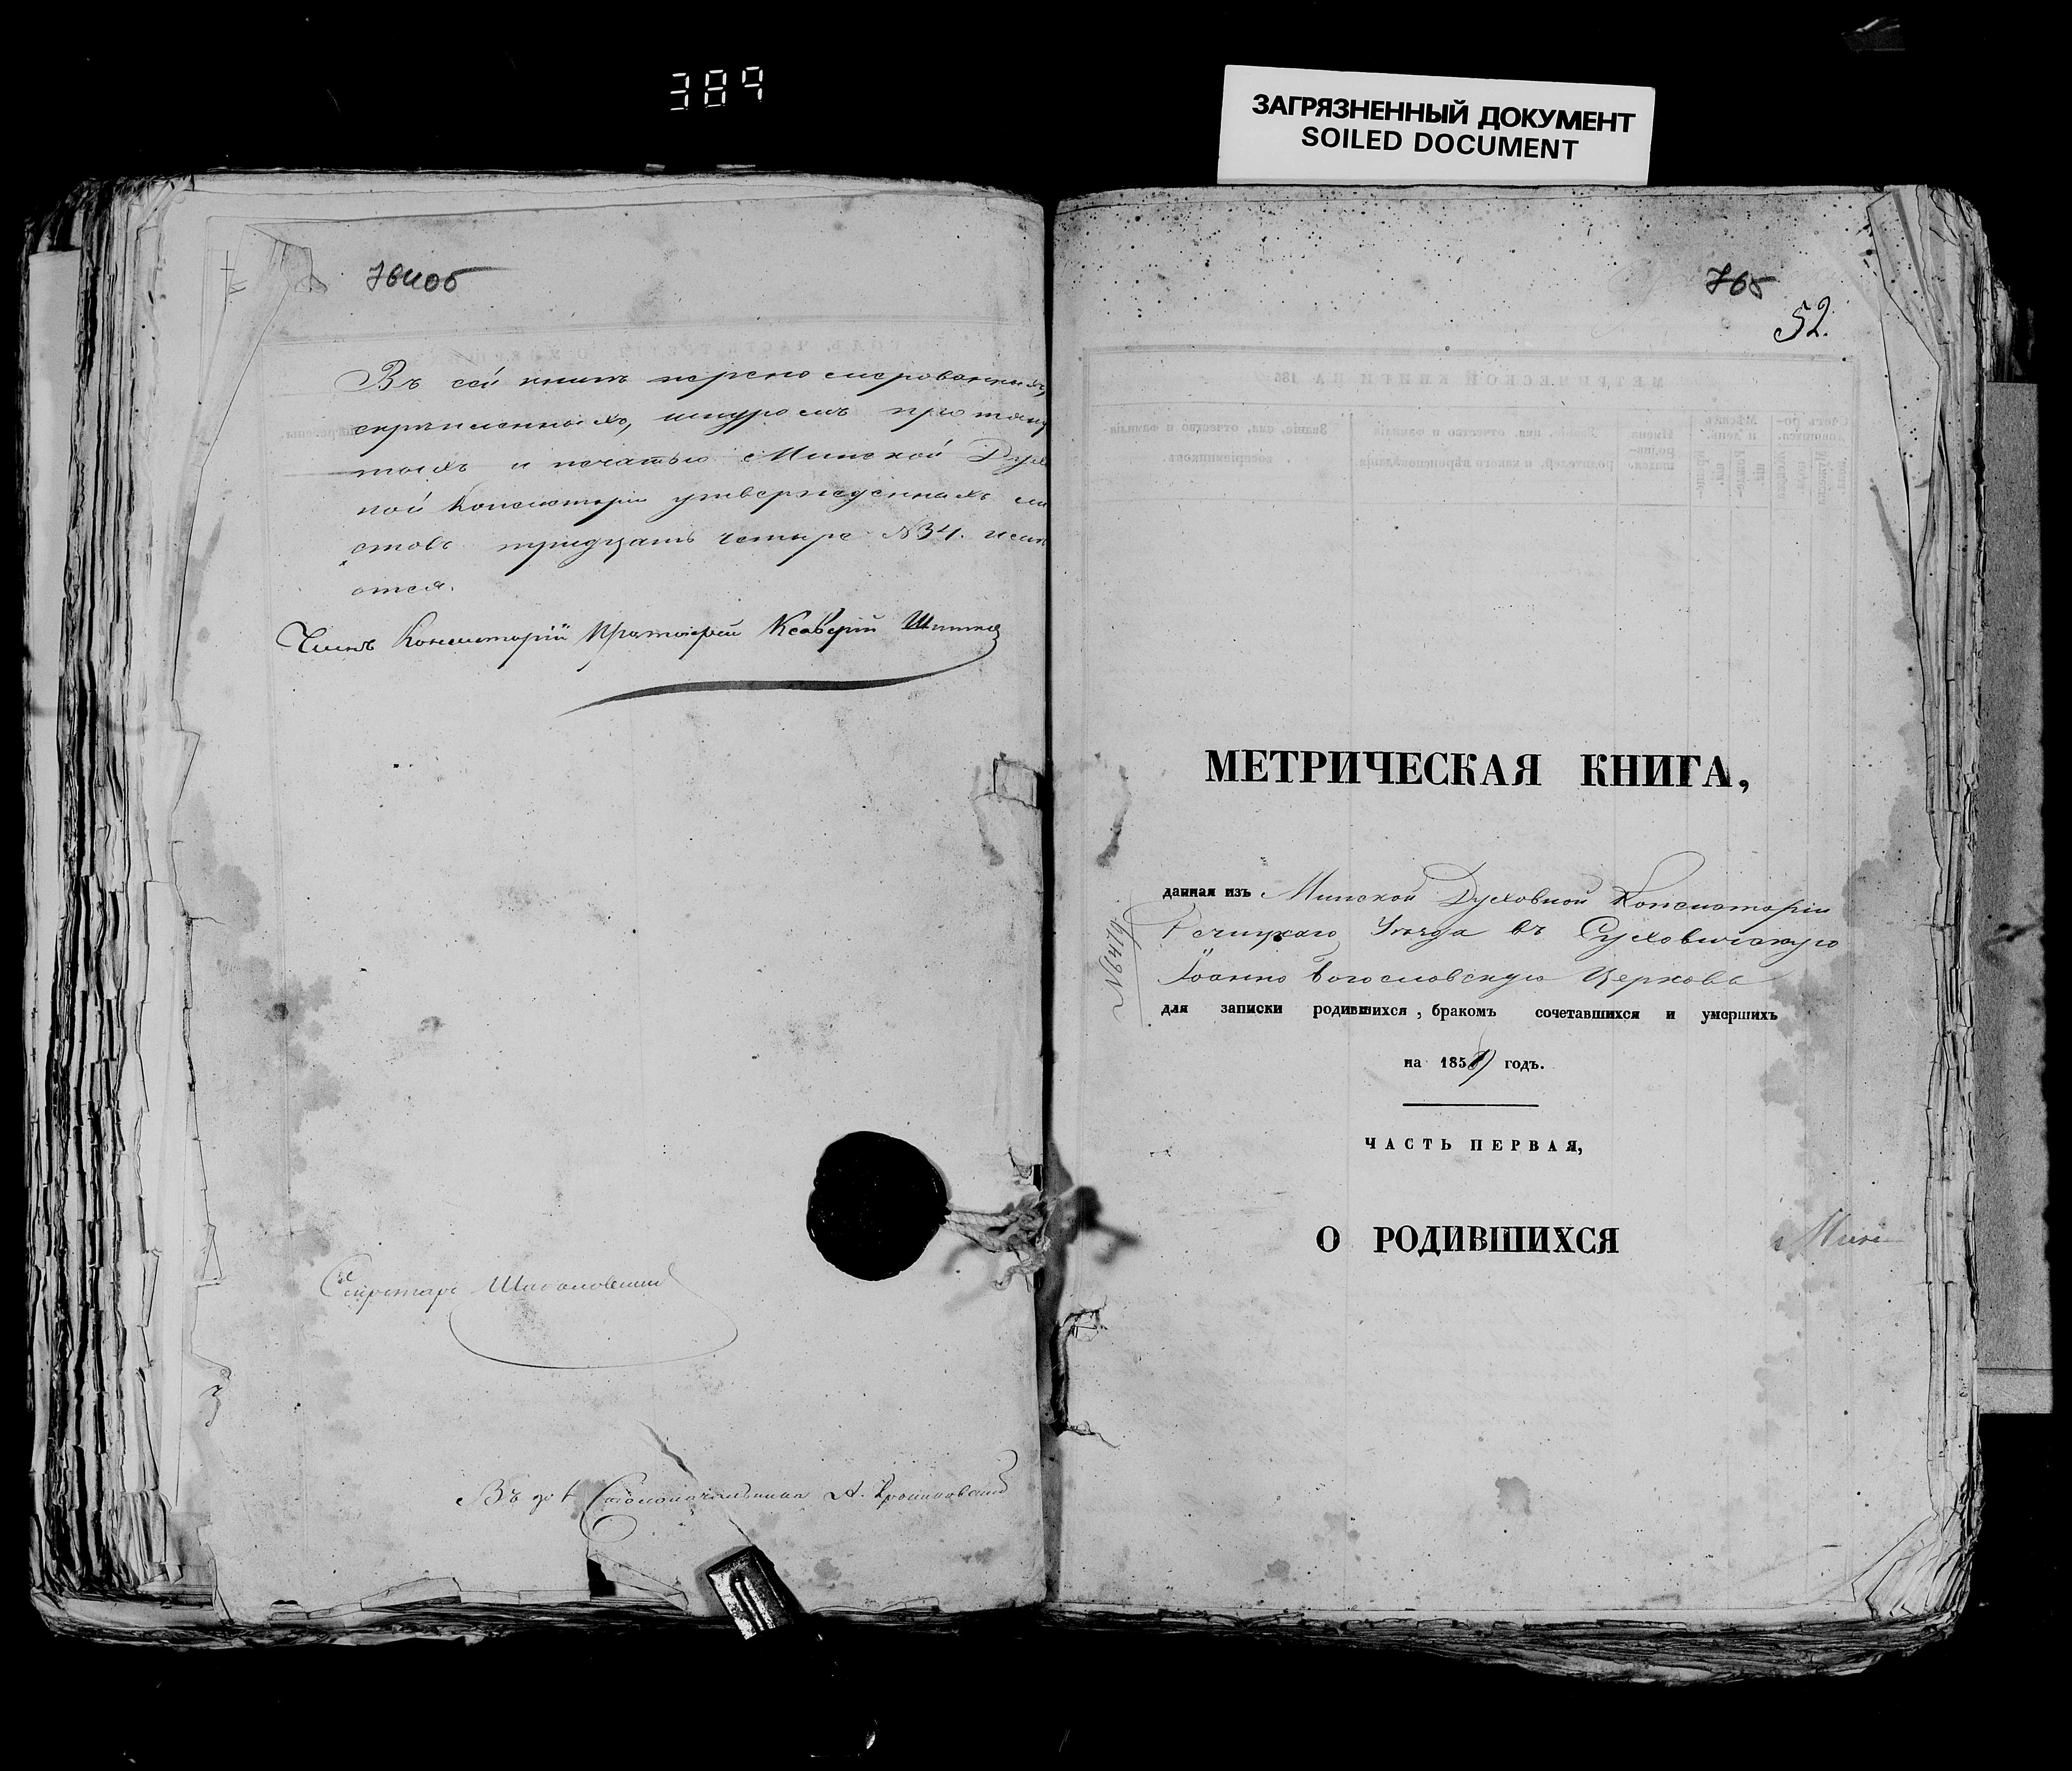 389
ЗАГРЯЗНЕННЫЙ ДОКУМЕНТ
SOILED DOCUMENT
764об
Въ сей книгѣ перенумерованныхъ,
скрѣпленныхъ, шнуромъ протяну
тыхъ и печатью Минской Духо
ной Консисторіи утвержденныхъ ли
стовъ тридцать четыре №34. име
ются.
Членъ Консисторіи Протоіерей Ксаверій
Секретарь
Въ до Столоначальника А.
765
52.
МЕТРИЧЕСКАЯ КНИГА,
данная изъ Минской Духовной Консисторіи
Рѣчицкаго Уѣзда въ Суховичскую
Іоанно Богословскую Церковь
№6419
для записки родившихся, бракомъ сочетавшихся и умершихъ
на 1859 годъ.
ЧАСТЬ ПЕРВАЯ,
О РОДИВШИХСЯ
Минс